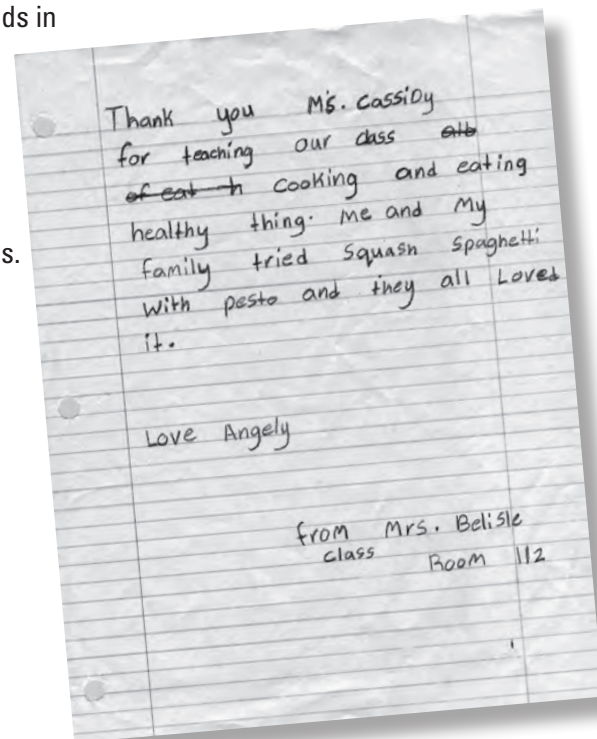 ds in
s.
Thank you Ms. Cassidy
for teaching our class
of eat h cooking and eating
healthy thing. Me and My
family tried Squash Spaghetti
With pesto and they all Loved
it.
Love Angely
from Mrs. Belisle
class Room 112